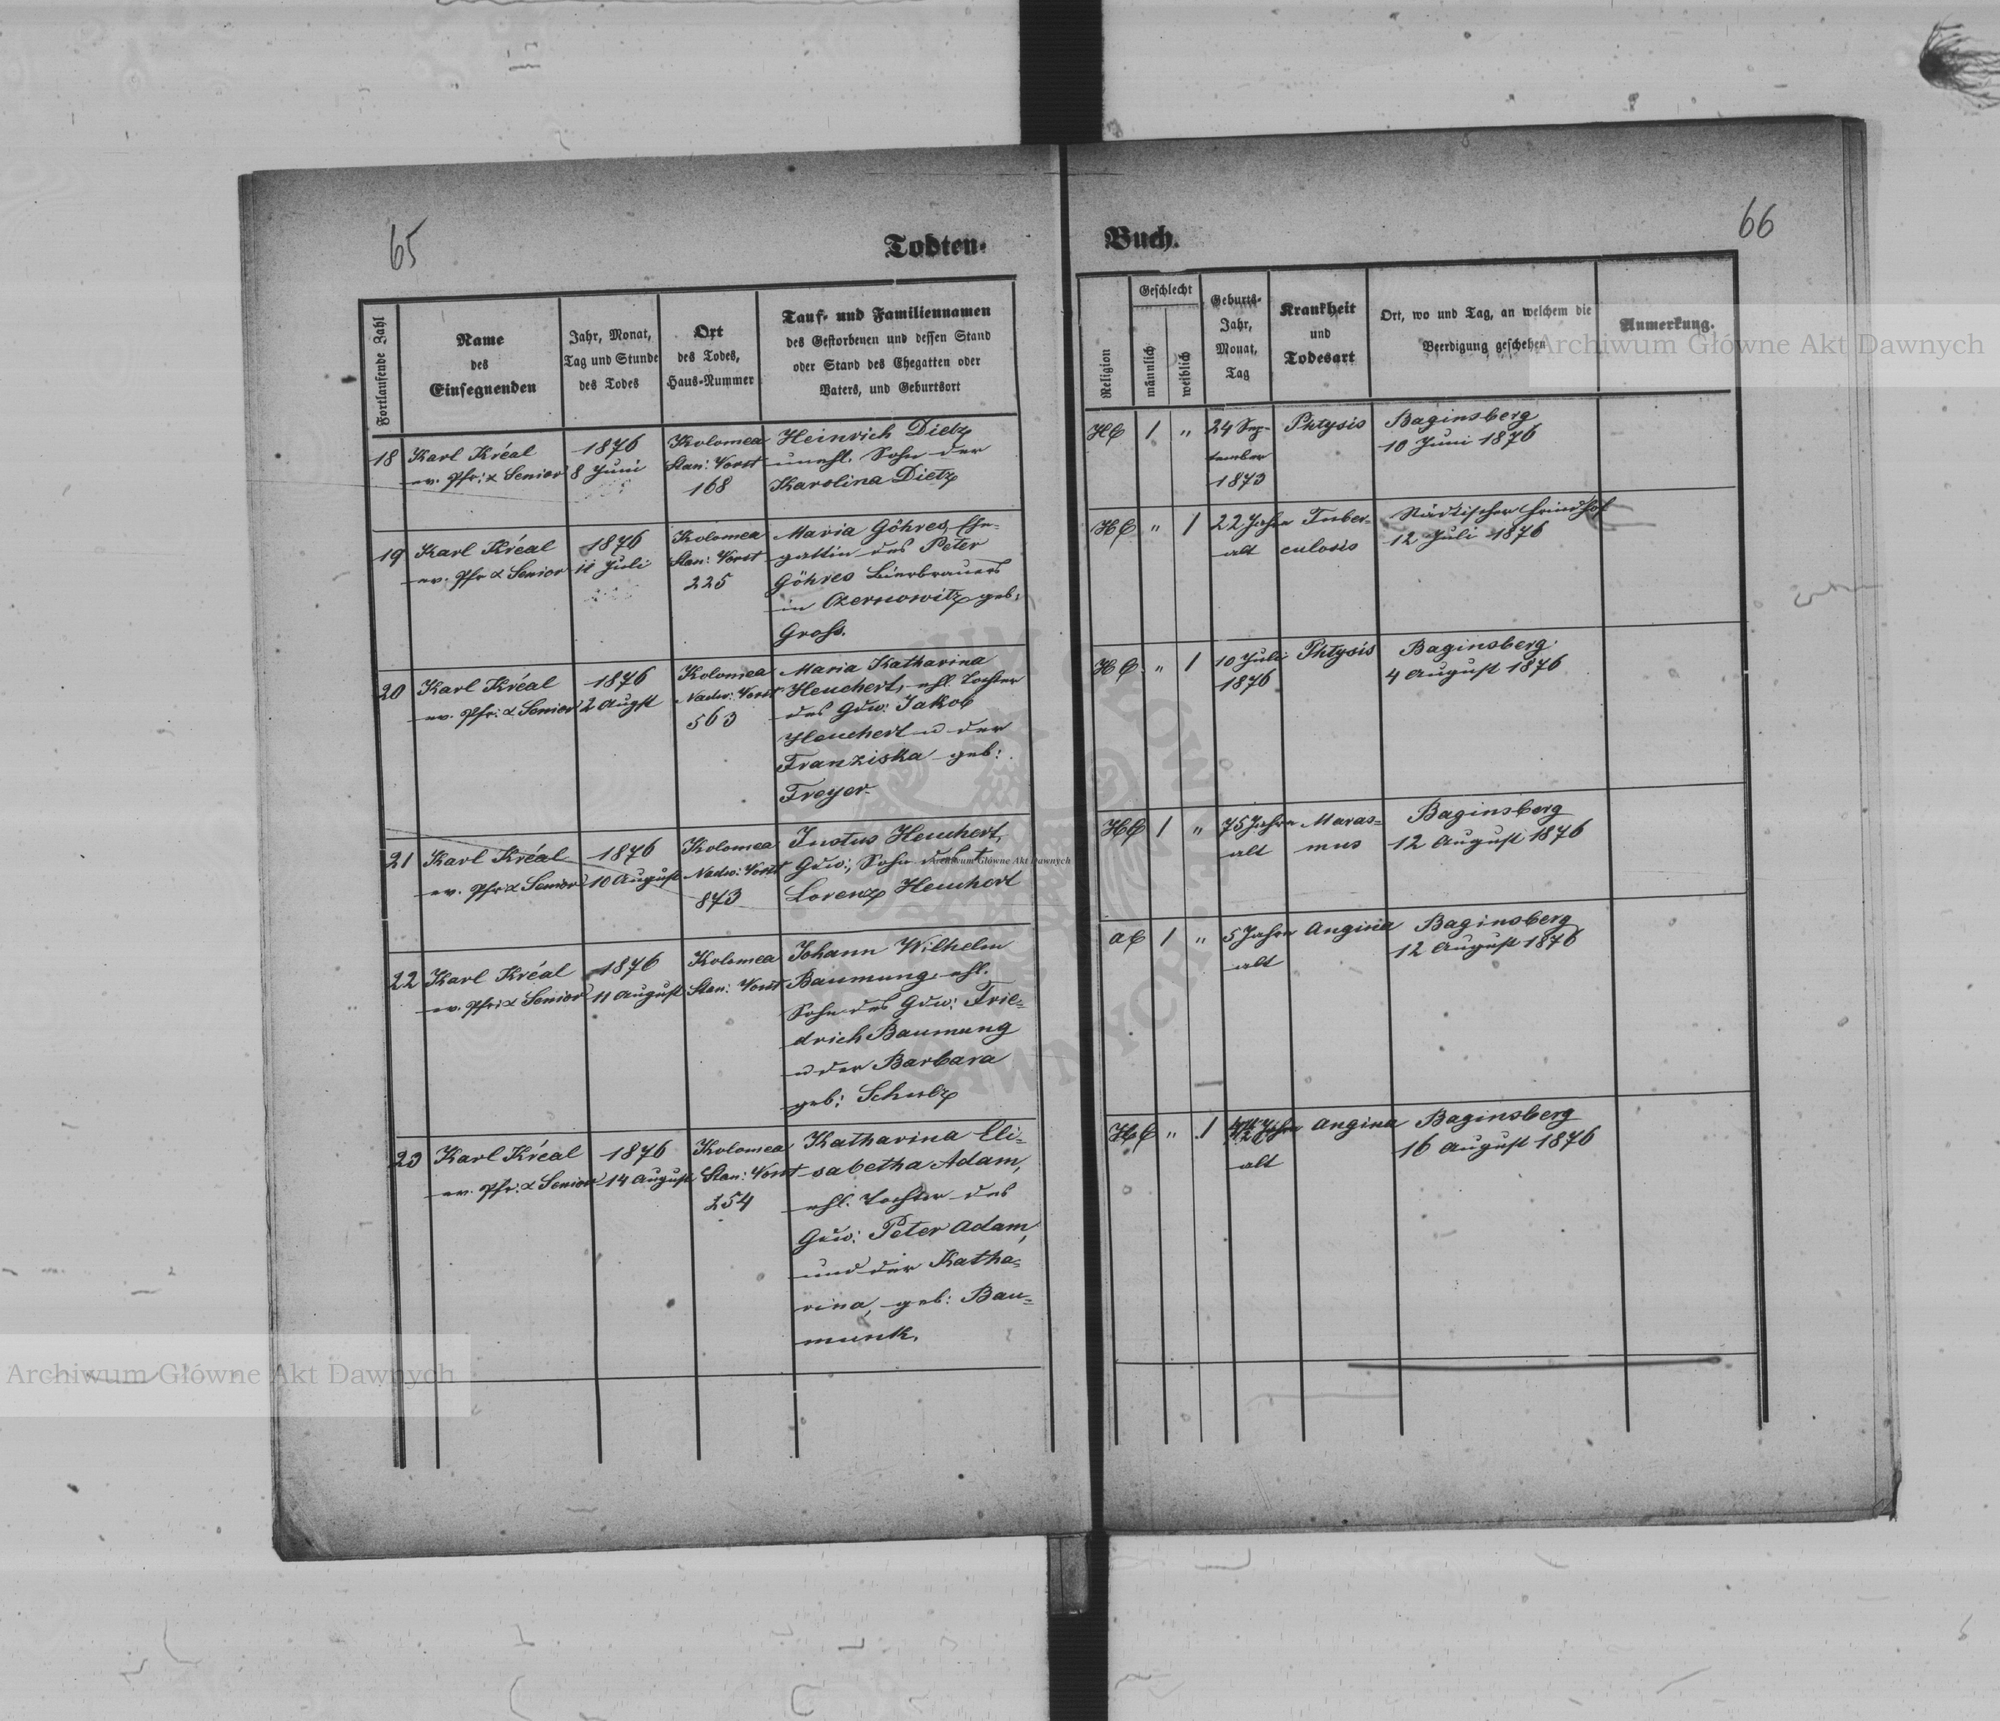 65
Todten-
Fortlaufende Zahl
Name
des
Einsegnenden
Jahr, Monat,
Tag und Stunde
des Todes
Ort
des Todes,
Haus-Nummer
Tauf- und Familiennamen
des Gestorbenen und dessen Stand
oder Stand des Ehegatten oder
Vaters, und Geburtsort
18
Karl Kréal
ev. Pfr: & Senior
1876
8 Juni
Kolomea
Stan: Vorst
168
Heinrich Dietz
unehl. Sohn der
Karolina Dietz
19
Karl Kréal
ev. Pfr & Senior
1876
11 Juli
Kolomea
Stan: Vorst
225
Maria Göhres, Ehe-
gattin des Peter
Göhres Bierbrauers
in Czernowitz geb:
Gross.
20
Karl Kréal
ev. Pfr: & Senior
1876
2 Augst
Kolomea
Nadw: Vorst
563
Maria Katharina
Heuchert, ehl. Tochter
des Gdw: Jakob
Heuchert u der
Franziska geb:
Freyer.
21
Karl Kréal
ev. Pfr & Senior
1876
10 August
Kolomea
Nadw: Vorst
873
Justus Heuchert,
Gdw:, Sohn des †
Lorenz Heuchert
22
Karl Kréal
ev. Pfr: & Senior
1876
11 August
Kolomea
Stan: Vorst
Johann Wilhelm
Baumung, ehl.
Sohn des Gdw: Frie-
drich Baumung
u der Barbara
geb: Schulz
23
Karl Kréal
ev. Pfr: & Senior
1876
14 August
Kolomea
Stan: Vorst
254
Katharina Eli-
sabetha Adam,
ehl. Tochter des
Gdw: Peter Adam,
und der Katha-
rina, geb: Bau-
munk.
66
Buch.
Religion
Geschlecht
männlich
weiblich
Geburts-
Jahr,
Monat,
Tag
Krankheit
und
Todesart
Ort, wo und Tag, an welchem die
Beerdigung geschehen
Anmerkung.
HC
1
"
24 Sep-
tember
1873
Phtysis
Baginsberg
10 Juni 1876
HC
"
1
22 Jahre
alt
Tuber-
culosis
Städtischer Friedhof
12 Juli 1876
HC
"
1
10 Juli
1876
Phtysis
Baginsberg
4 August 1876
HC
1
"
75 Jahre
alt
Maras-
mus
Baginsberg
12 August 1876
AC
1
"
5 Jahre
alt
Angina
Baginsberg
12 August 1876
HC
"
1
Jahre
alt
Angina
Baginsberg
16 August 1876
Archiwum Główne Akt Dawnych
Archiwum Główne Akt Dawnych
Archiwum Główne Akt Dawnych